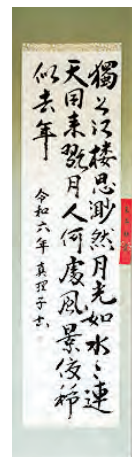 獨上江楼思渺然月光如水々連
天同来翫月人何處風景依稀
似去年
令和六年 真理子書